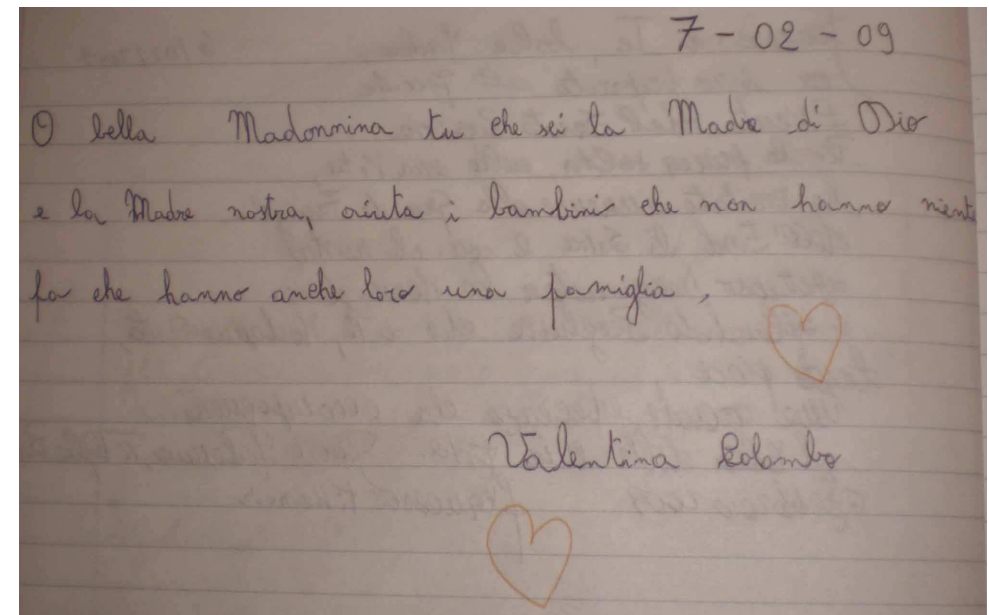 7 - 02 - 09
O bella Madonnina tu che sei la Madre di Dio
e la Madre nostra, aiuta i bambini che non hanno niente
fa che hanno anche loro una famiglia,
Valentina Colombo